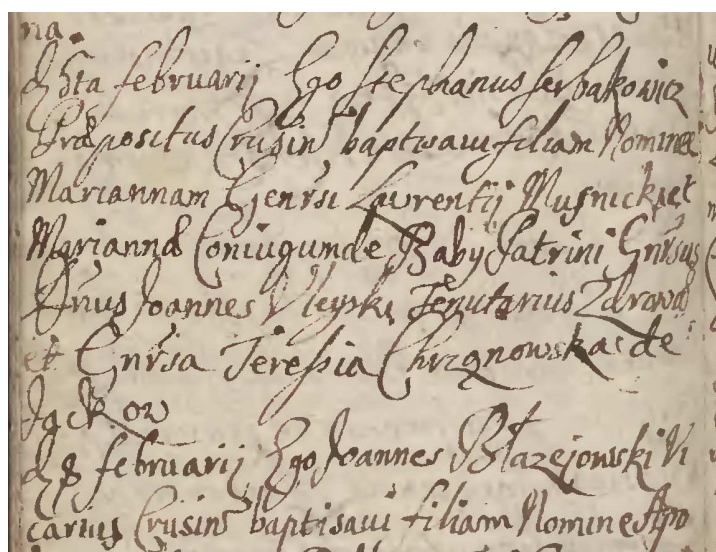 na.
d 5ta februarij Ego Stephanus Serbakowicz
Præpositus Crusin baptisaui filiam Nomine
Mariannam Genrsi Laurentij Musnicki et
Mariannæ Coniugum de Baby Patrini Gnrsus
Dnus Joannes Vleyski Tenutarius
et Gnrsa Teressia Chrząnowska de
Jack ow
d 8 februarij Ego Joannes Błazejowski Vi
carius Crusin baptisaui filiam Nomine Apo